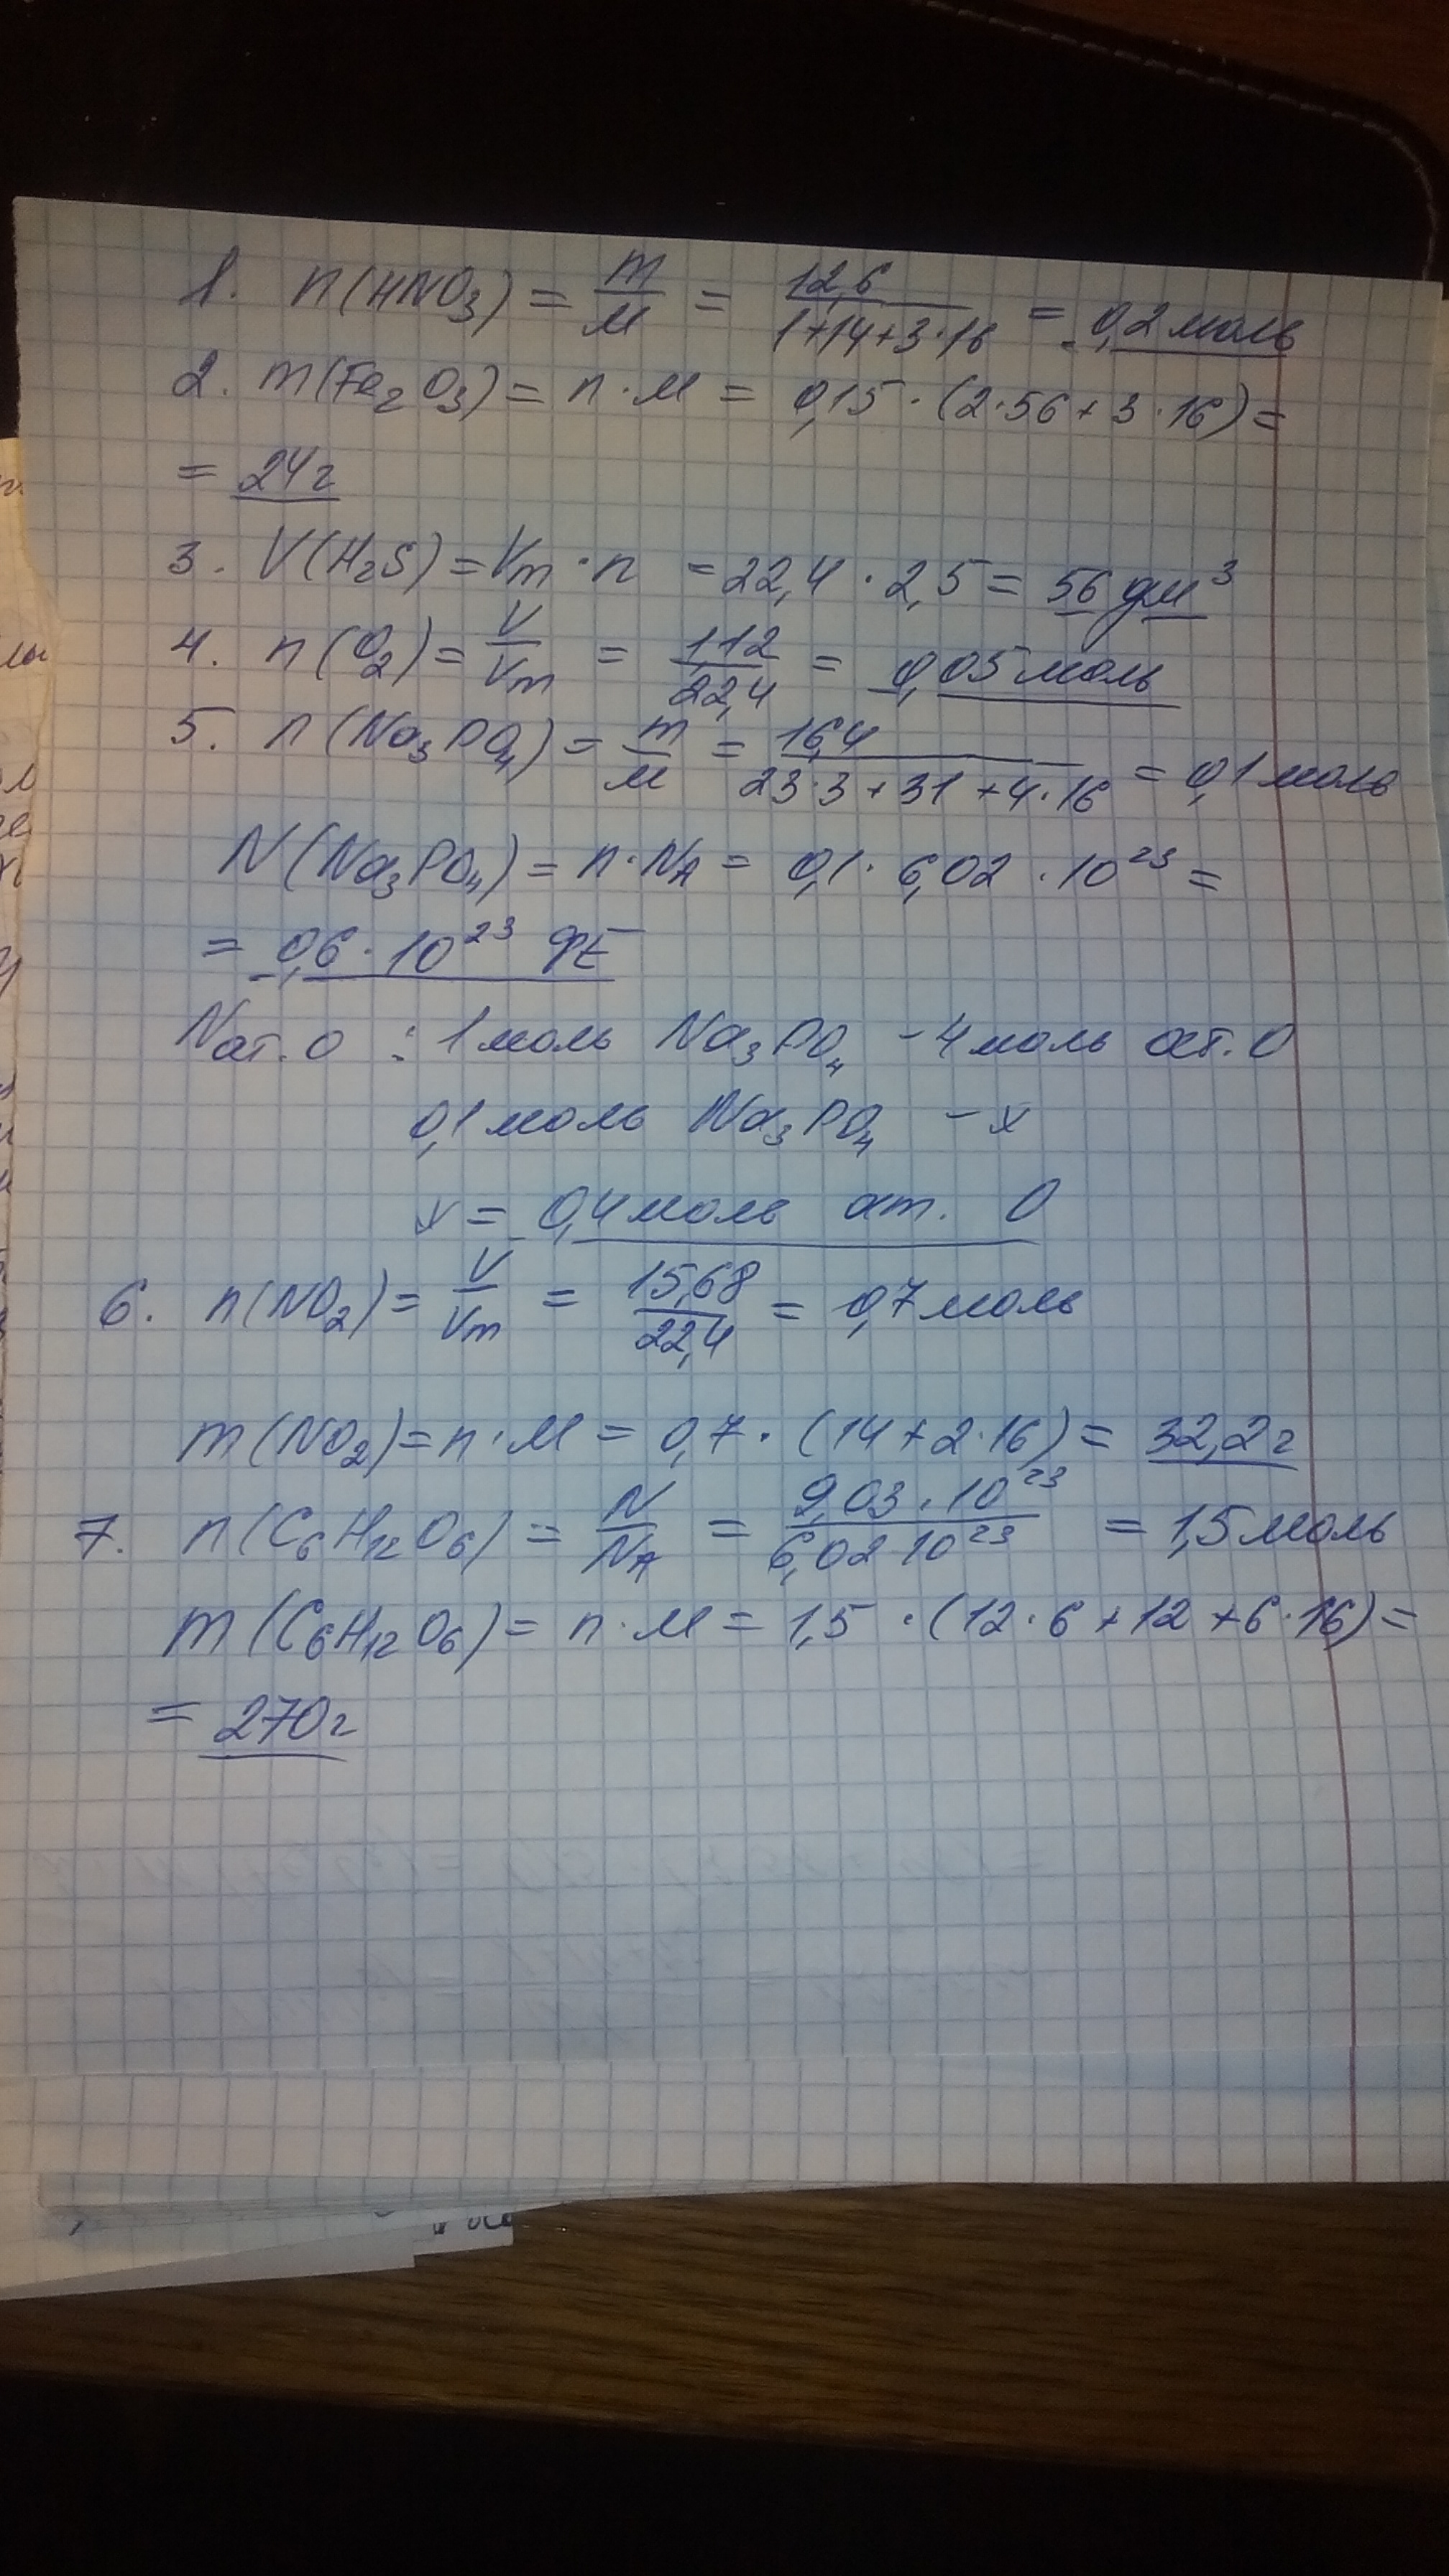 1. n(HNO₃) = m/M = 12,6/(1+14+3·16) = 0,2 моль
2. m(Fe₂O₃) = n·M = 0,15·(2·56+3·16) =
= 24 г
3. V(H₂S) = Vm·n = 22,4·2,5 = 56 дм³
4. n(O₂) = V/Vm = 1,12/22,4 = 0,05 моль
5. n(Na₃PO₄) = m/M = 16,4/(23·3+31+4·16) = 0,1 моль
N(Na₃PO₄) = n·NA = 0,1·6,02·10²³ =
= 0,6·10²³ ФЕ
Nат.О : 1 моль Na₃PO₄ – 4 моль ат. О
0,1 моль Na₃PO₄ – x
x = 0,4 моль ат. О
6. n(NO₂) = V/Vm = 15,68/22,4 = 0,7 моль
m(NO₂) = n·M = 0,7·(14+2·16) = 32,2 г
7. n(C₆H₁₂O₆) = N/NA = 9,03·10²³/6,02 10²³ = 1,5 моль
m(C₆H₁₂O₆) = n·M = 1,5·(12·6+12+6·16) =
= 270 г